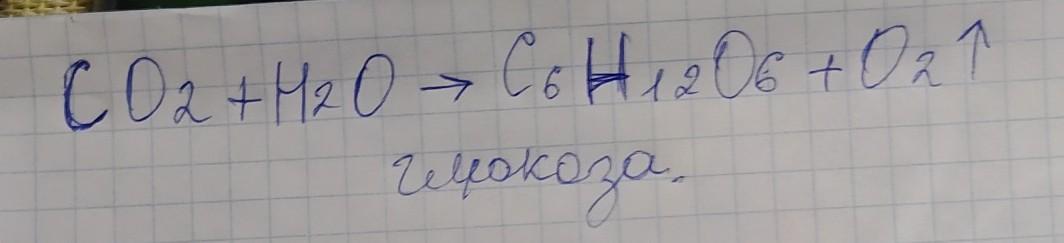 CO2 + H2O → C6H12O6 + O2↑
глюкоза.